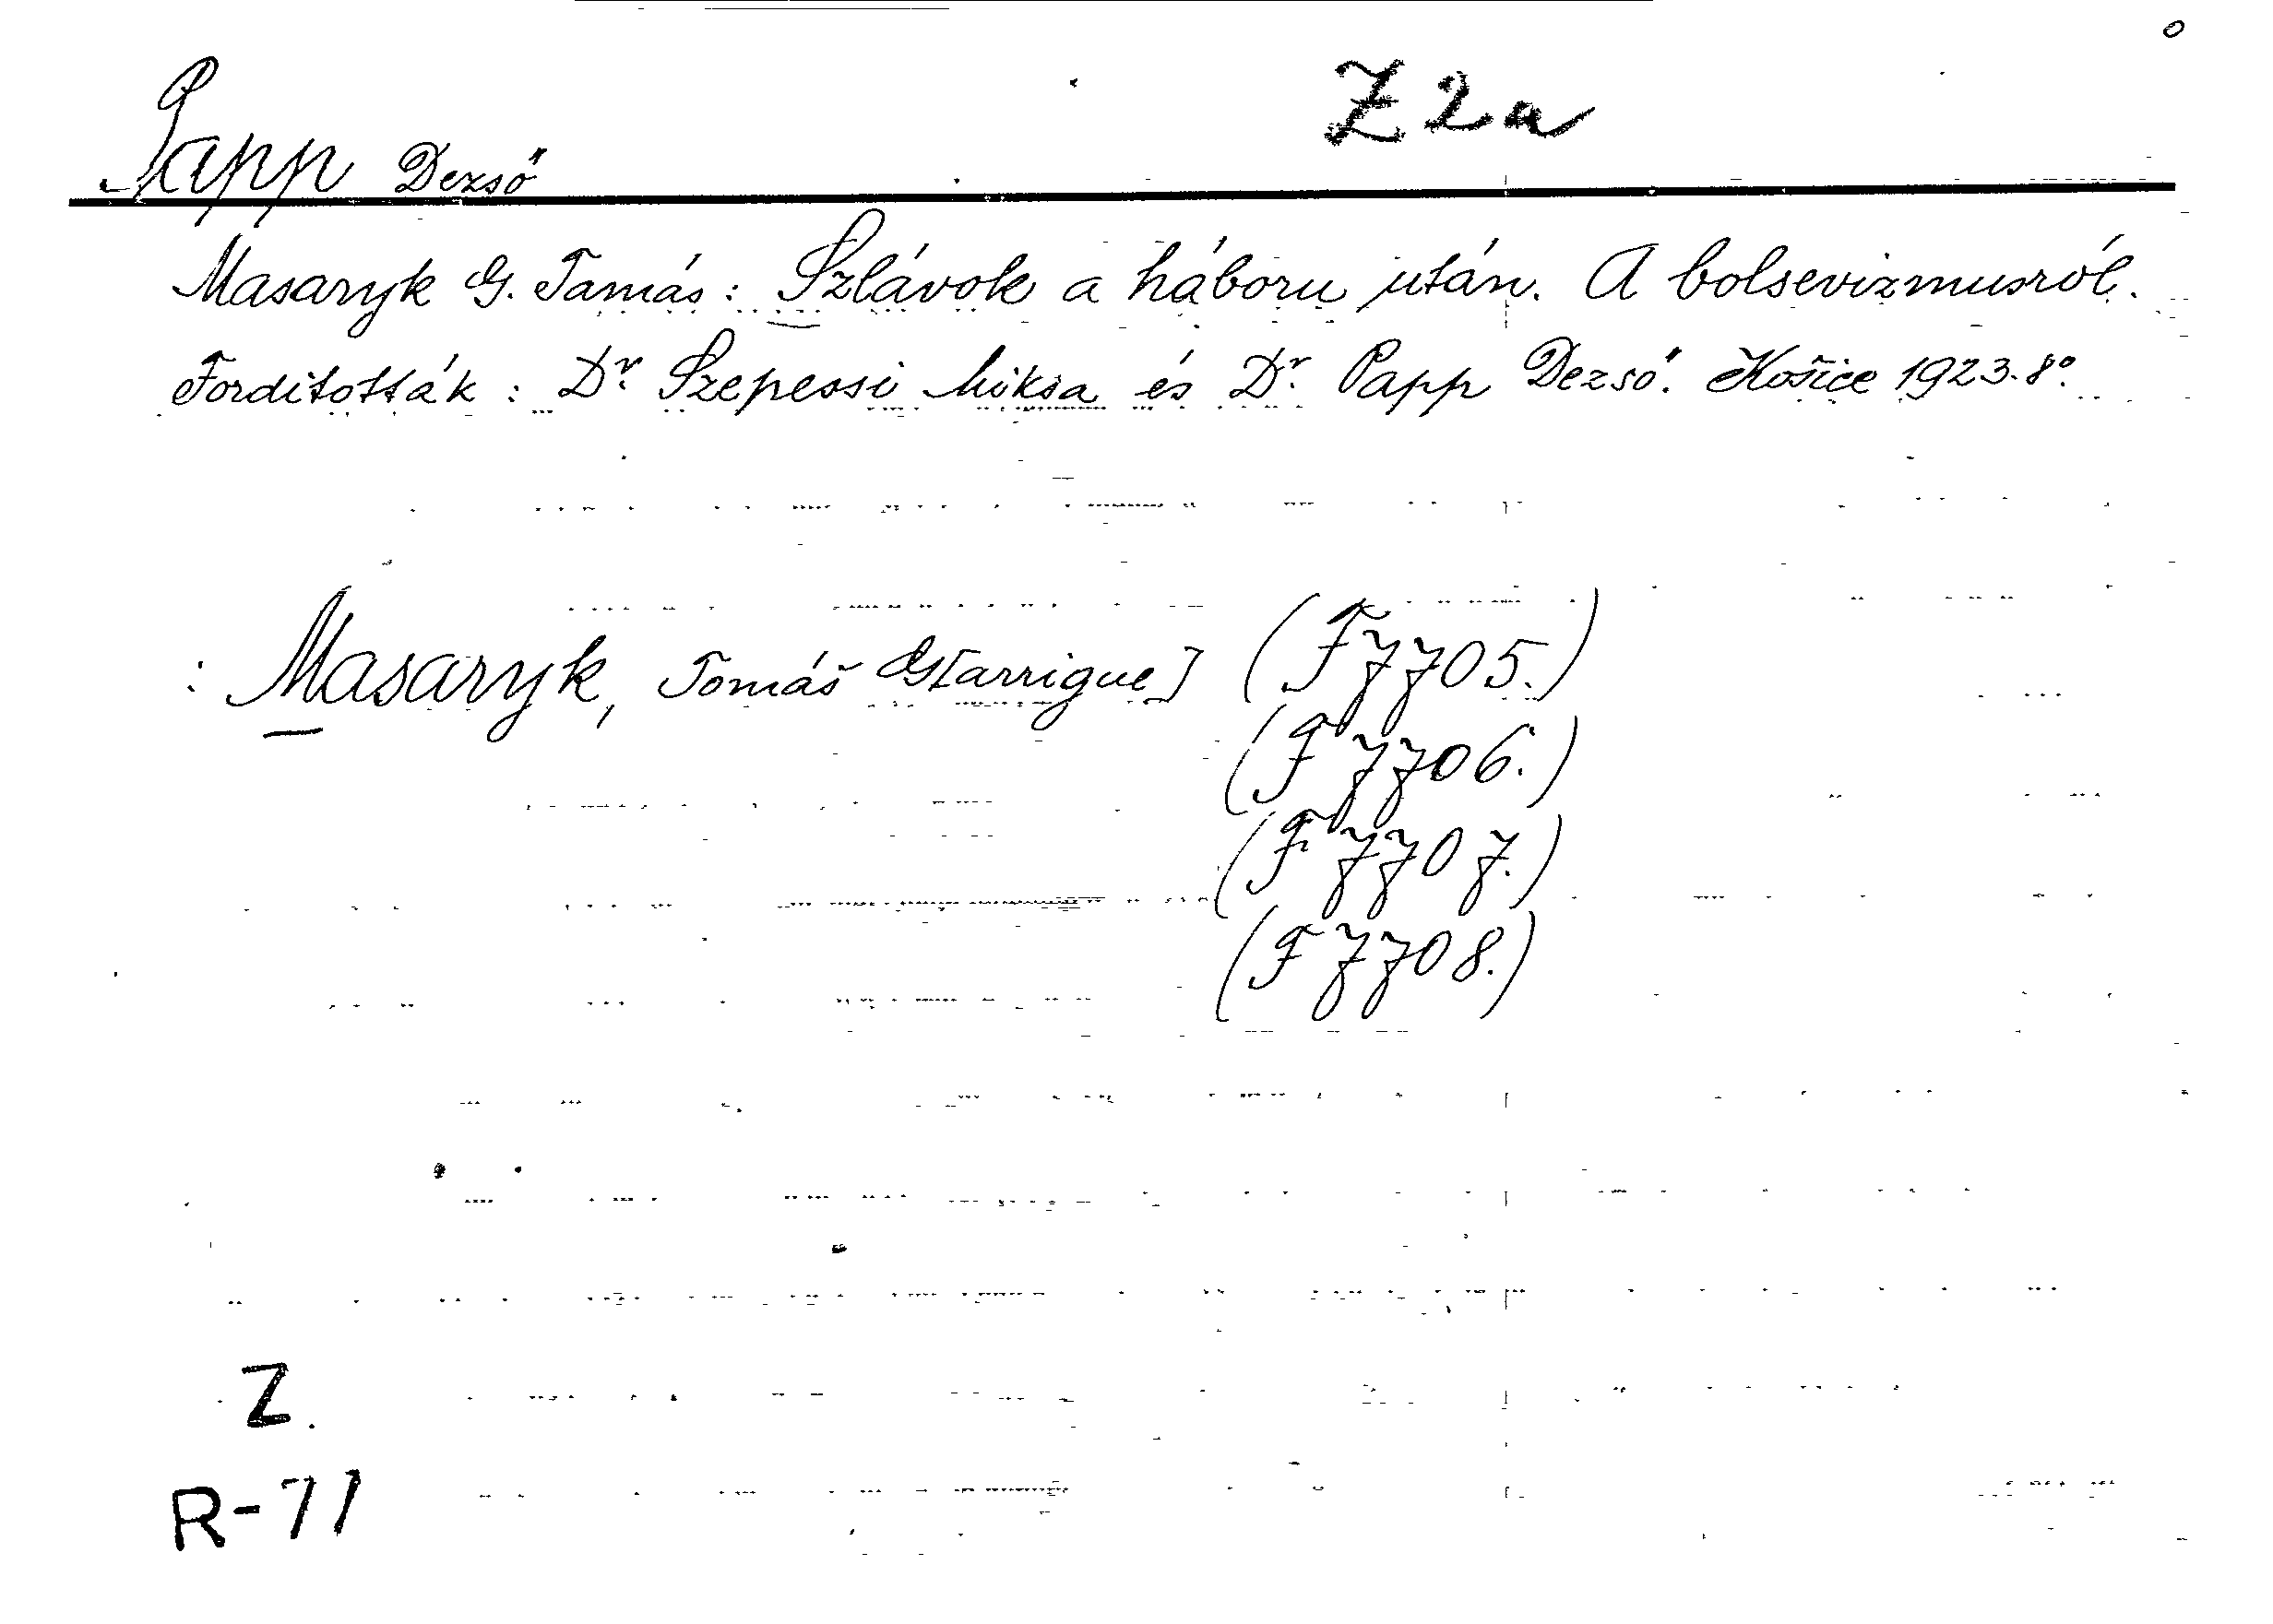 Z 2a
Papp Dezső
Masaryk G. Tamás: Szlávok a háboru után. A bolsevizmusról.
Forditották: Dr. Szepessi Miksa és Dr. Papp Dezső. Košice 1923. 8°.
: Masaryk, Tomáš G[arrigue] (F 7705.)
(F 7706.)
(F 7707.)
(F 7708.)
Z.
R-71